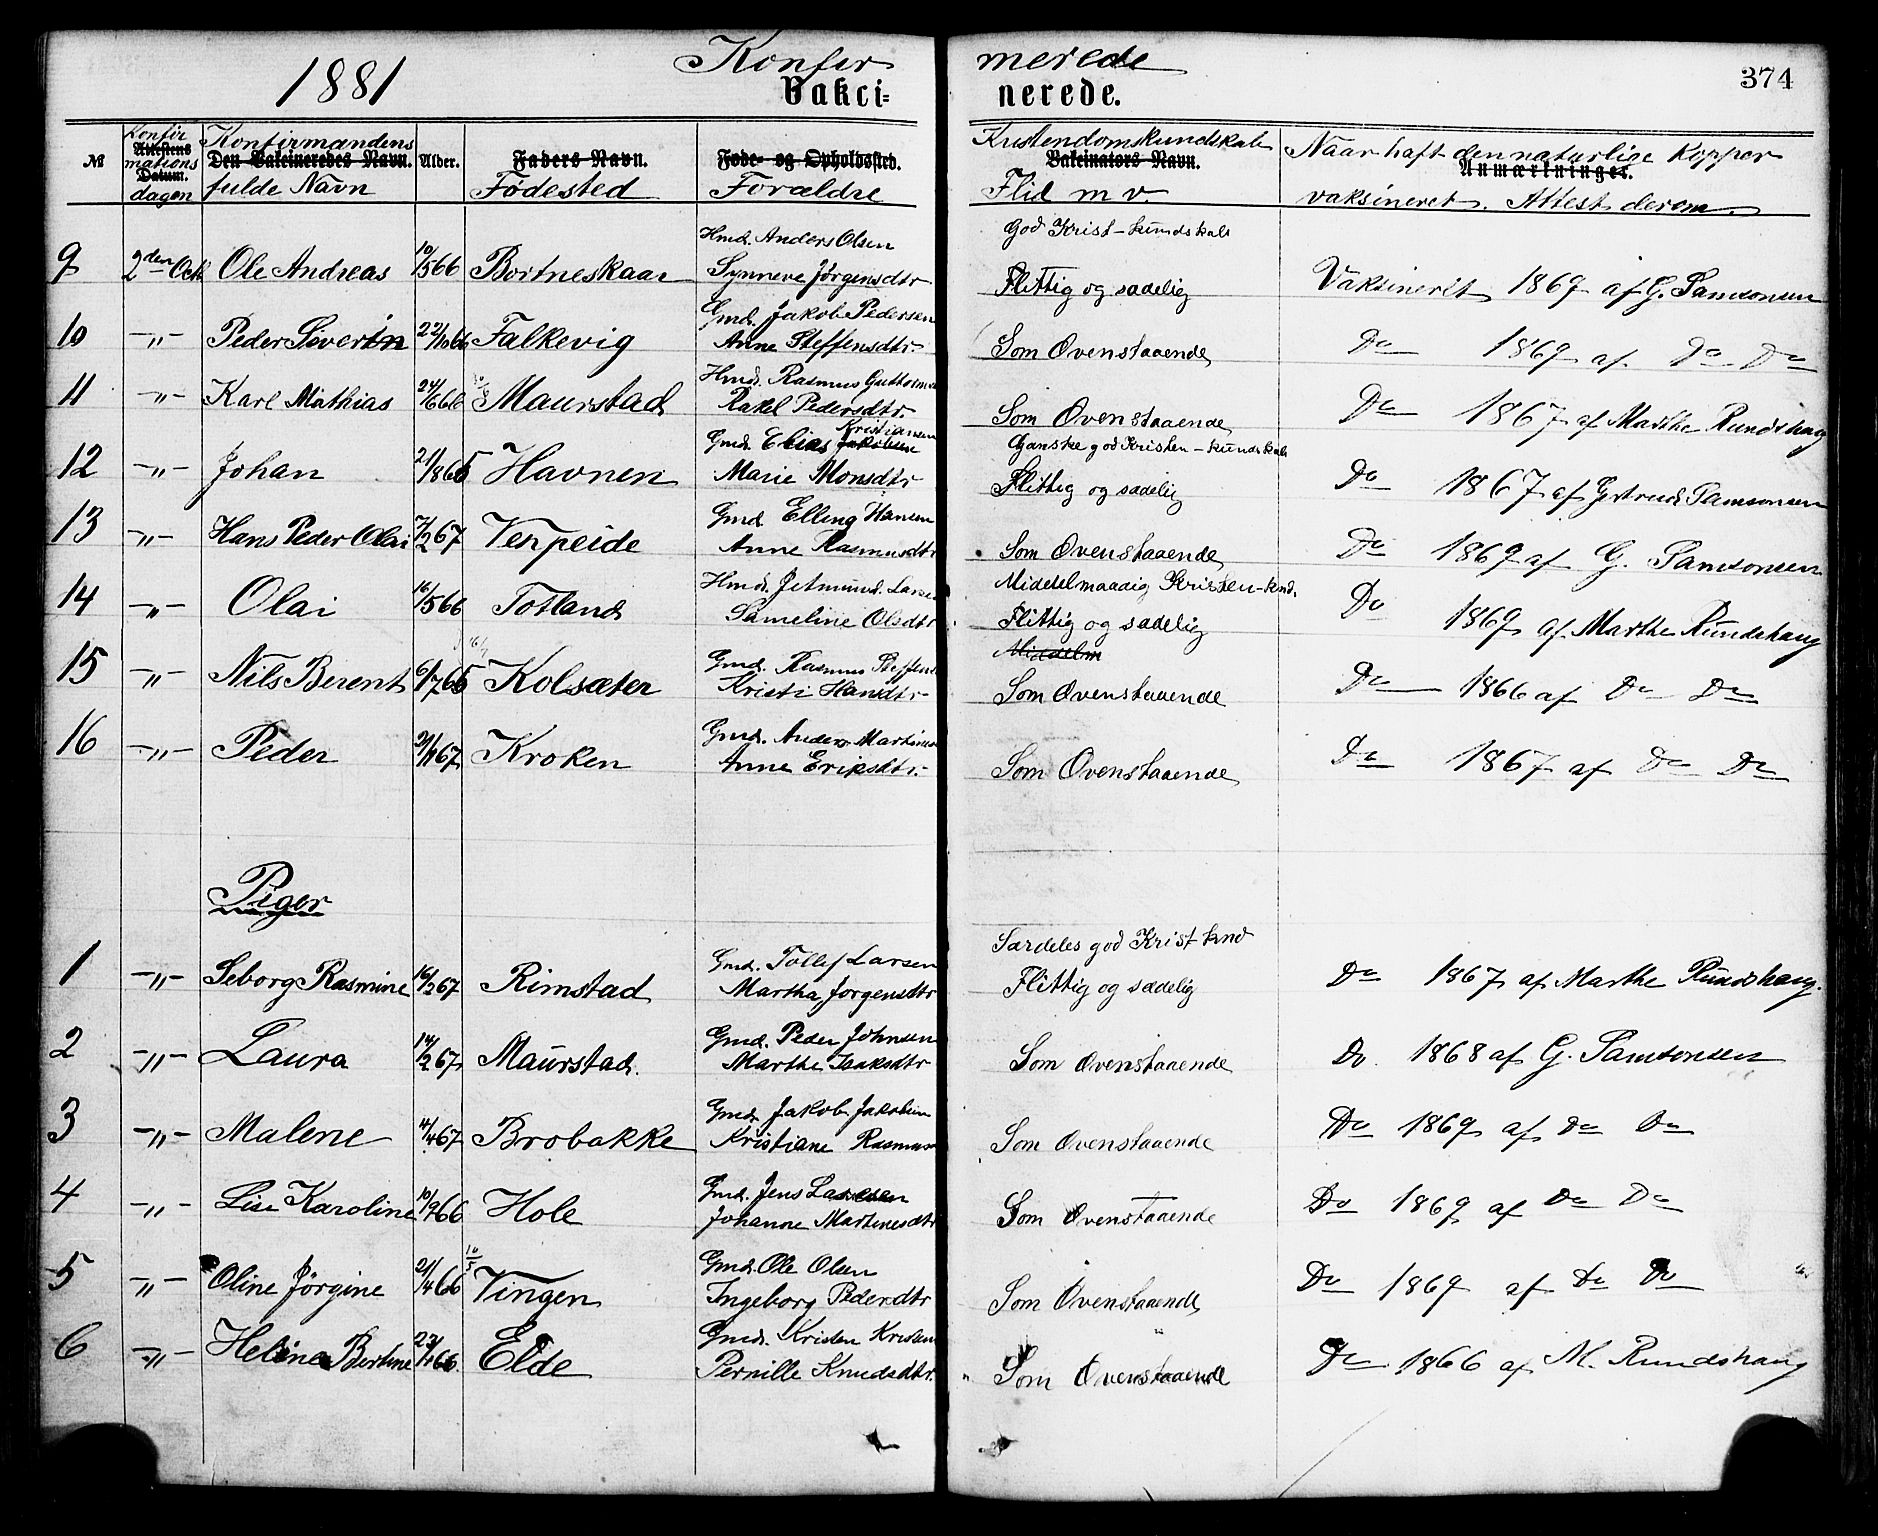 1881 Konfirmerede 374
Vakcinerede.
№ Konfirmationsdagen Attestens Datum. Konfirmandens fulde Navn Den Vakcineredes Navn. Alder. Faders Navn. Fødested Føde- og Opholdssted. Forældre Kristendomskundskab Vakcinators Navn. Flid m v. Naar haft den naturlige Kopper Anmærkninger. vaksineret. Attest derom.
Hmd. Anders Olsen God Krist-kundskab
9 2den Octb Ole Andreas 10/5 66 Bortneskaar Synneve Jørgensdtr Flittig og sædelig Vaksineret 1869 af G. Samsonsen
Gmd. Jakob Pedersen
10 -"- Peder Siverin 22/10 66 Falkevig Anne Steffensdtr. Som Ovenstaaende Do 1869 af Do Do
Hmd. Rasmus Guttormsen
11 -"- Karl Mathias 24/6 66 Maurstad Rakel Pedersdtr. Som Ovenstaaende Do 1867 af Marthe Rundshaug
Gmd. Elias Jakobsen Kristiansen Ganske god Kristen-kundskab
12 -"- Johan 21/8 65 Havnen Marie Monsdtr Flittig og sædelig Do 1867 af Gertrud Samsonsen
Gmd. Elling Hansen
13 -"- Hans Peder Olai 7/2 67 Venpeide Anne Rasmusdtr Som Ovenstaaende Do 1869 af G. Samsonsen
Hmd. Jetmund Larsen Middelmaadig Kristen-knd.
14 -"- Olai 16/5 66 Totland Sameline Olsdtr Flittig og sædelig Do 1869 af Marthe Rundshaug
Middelm
Gmd. Rasmus Steffens
15 -"- Nils Berent 6/7 65 Kolsæter Kristi Hansdtr Som Ovenstaaende Do 1866 af Do Do
Gmd. Anders Martinus
16 -"- Peder 67 Kroken Anne Eriksdtr. Som Ovenstaaende Do 1867 af Do Do
Piger
Gmd. Tollef Larsen Særdeles god Krist knd
1 -"- Seborg Rasmine 16/2 67 Rimstad Martha Jørgensdtr Flittig og sædelig Do 1867 af Marthe Rundshaug.
Gmd. Peder Johnsen
2 -"- Laura 14/2 67 Maurstad. Marthe Isaksdtr Som Ovenstaaende Do. 1868 af G. Samsonsen
Gmd. Jakob Jakobsen
3 -"- Malene 4/4 67 Brobakke Kristiane Rasmus Som Ovenstaaende Do 1869 af Do Do
Gmd. Jens Lassesen
4 -"- Lise Karoline 10/9 66 Hole Johanne Martinesdtr Som Ovenstaaende Do 1869 af Do Do
Gmd. Ole Olsen
5 -"- Oline Jørgine 21/4 66 Vingen Ingeborg Pedersdtr Som Ovenstaaende Do 1869 af Do Do
Gmd. Kristen Kristen
6 -"- Heline Bertine 66. Elde Pernille Knudsdtr. Som Ovenstaaende Do 1866 af M. Rundshaug